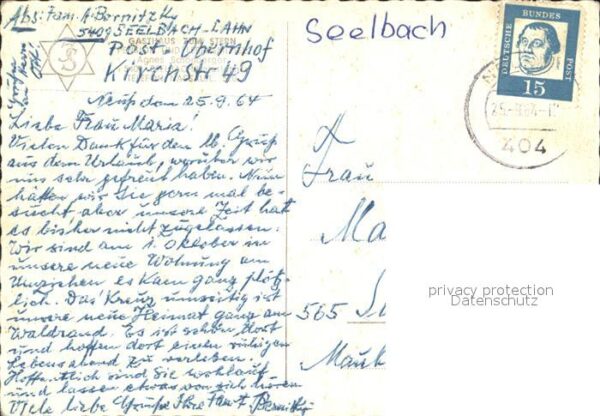 Abs: Fam. A. Bernitzky
5409 SEELBACH-LAHN
Post Obernhof
Kirchstr 49
GASTHAUS ZUM STERN
Seelbach
DEUTSCHE BUNDESPOST
15
404
Neuß den 25.9.64
Liebe Frau Maria!
Vielen Dank für den lb. Gruß
aus dem Urlaub, worüber wir
uns sehr gefreut haben. Nun
hätten wir Sie gern mal be-
sucht, aber unsere Zeit hat
es bisher nicht zugelassen.
Wir sind am 1. Oktober in
unsere neue Wohnung am
Umziehen es kam ganz plötz-
lich. Das Kreuz umseitig ist
unsere neue Heimat ganz am
Waldrand. Es ist schön dort
und hoffen dort einen ruhigen
Lebensabend zu verleben.
Hoffentlich sind Sie wohlauf
und lassen etwas von sich hören
Viele liebe Grüße Ihre Fam. A. Bernitzky
Frau
Ma
565 S
Mauk
privacy protection
Datenschutz